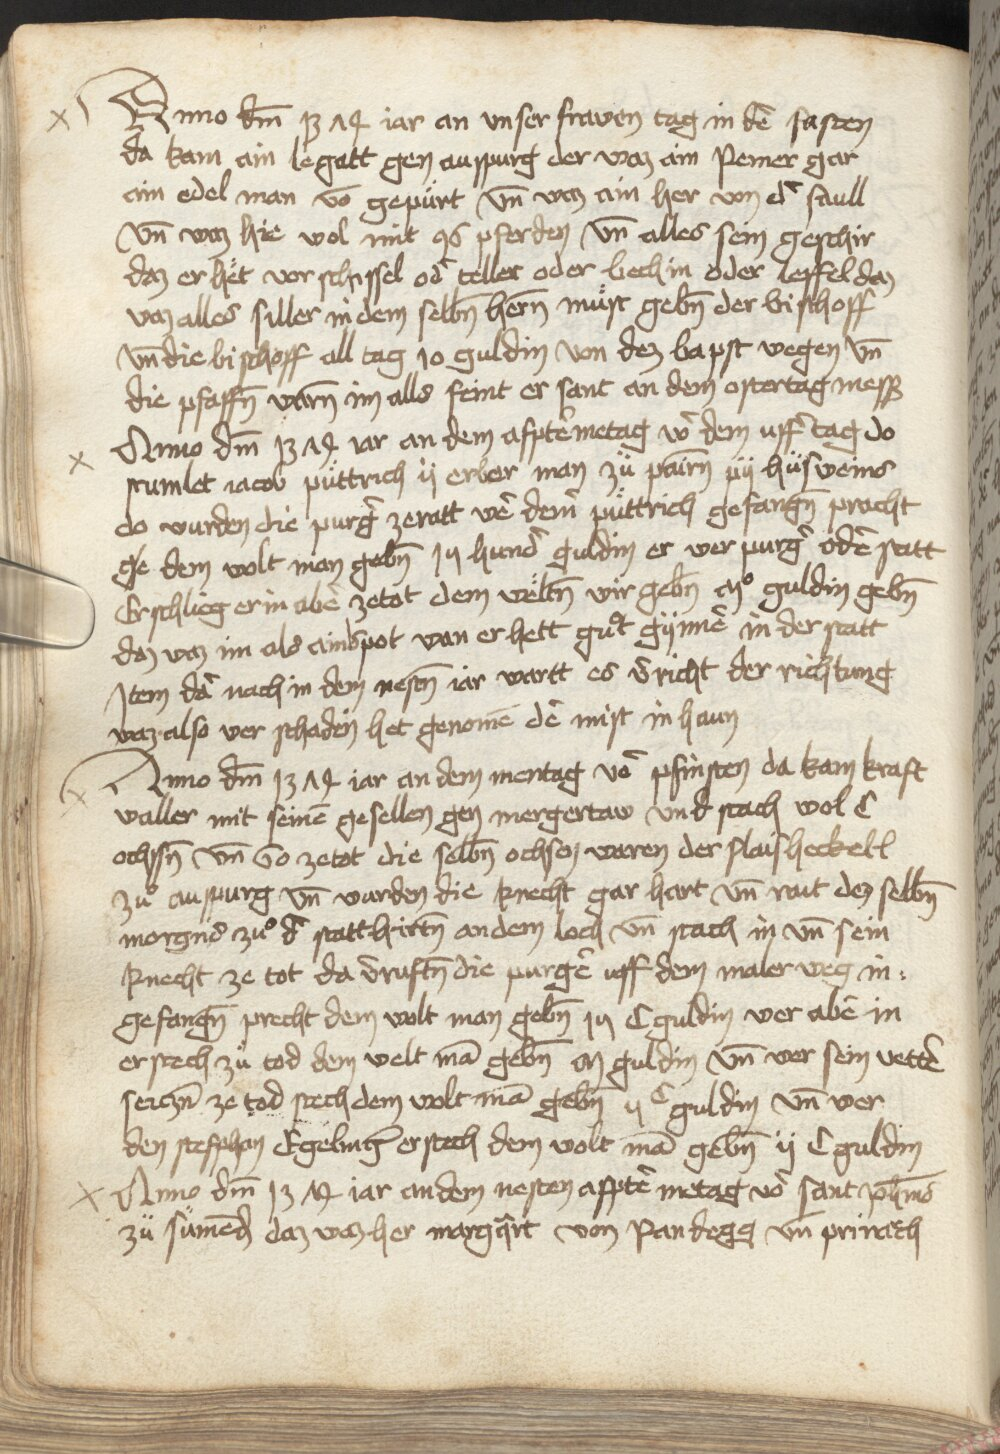 Anno dm̄ 13 74 iar an vnser frawen tag in dē fasten
da kam ain legatt gen auspurg der waz ain Remer gar
ain edel man vō gepürt vn̄ waz ain her von
vn̄ waz hie wol mit 96 pferden vn̄ alles sein geschir
daz er het vor schissel od̄ teller oder bechin oder leffel daz
waz alles silber in dem selbn̄ hern̄ müst gebn̄ der bischoff
vn̄ die bischoff all tag 10 guldin von dez bapst wegen vn̄
die pfaffn̄ warn̄ im alls feint er sant an dem ostertag mess
Anno dm̄ 13 74 iar an dem afftērmetag vō dem uffē tag do
rumlet iacob püttrich ij erber man zü pairn̄
do wurden die purgē zeratt wē dem püttrich gefangn̄ precht
dem wolt man gebn̄ hundē guldin er wer purgē odē statt
Erschlieg er in abē zetot dem wöltn̄ wir gebn̄ guldin gebn̄
daz waz im als ain spot wan er hett gut gynnē in der statt
Item dā nach in dem nestn̄ iar wartt es v̄richt der richtung
waz also wer schaden het genomē dē mist in haun
Anno dm̄ 13 74 iar an dem mentag vō pfinsten da kam kraft
waller mit seinē gesellen gen mergertaw vnd stach wol C
ochsn̄ vn̄ zetot die selbn̄ ochsen waren der flaisheckell
zu auspurg vn̄ wurden die knecht gar hart vn̄ rait dez selbn̄
morgns zu d̄ statthirtn̄ an dem loch vn̄ stach in vn̄ sein
knecht ze tot da v̄ruftn̄ die purgē uff dem maler weg in
gefangn̄ precht dem wolt man gebn̄ C guldin wer abē in
erstech zü tod dem welt mā gebn̄ guldin vn̄ wer sein vettē
ze tod stech dem wolt mā gebn̄ ij C guldin vn̄ wer
den steffhan Egelingē erstech dem wolt mā gebn̄ ij C guldin
Anno dm̄ 13 74 iar an dem nesten afftē metag vō sant
zü daz waz her margqūrt von Randegg vn̄